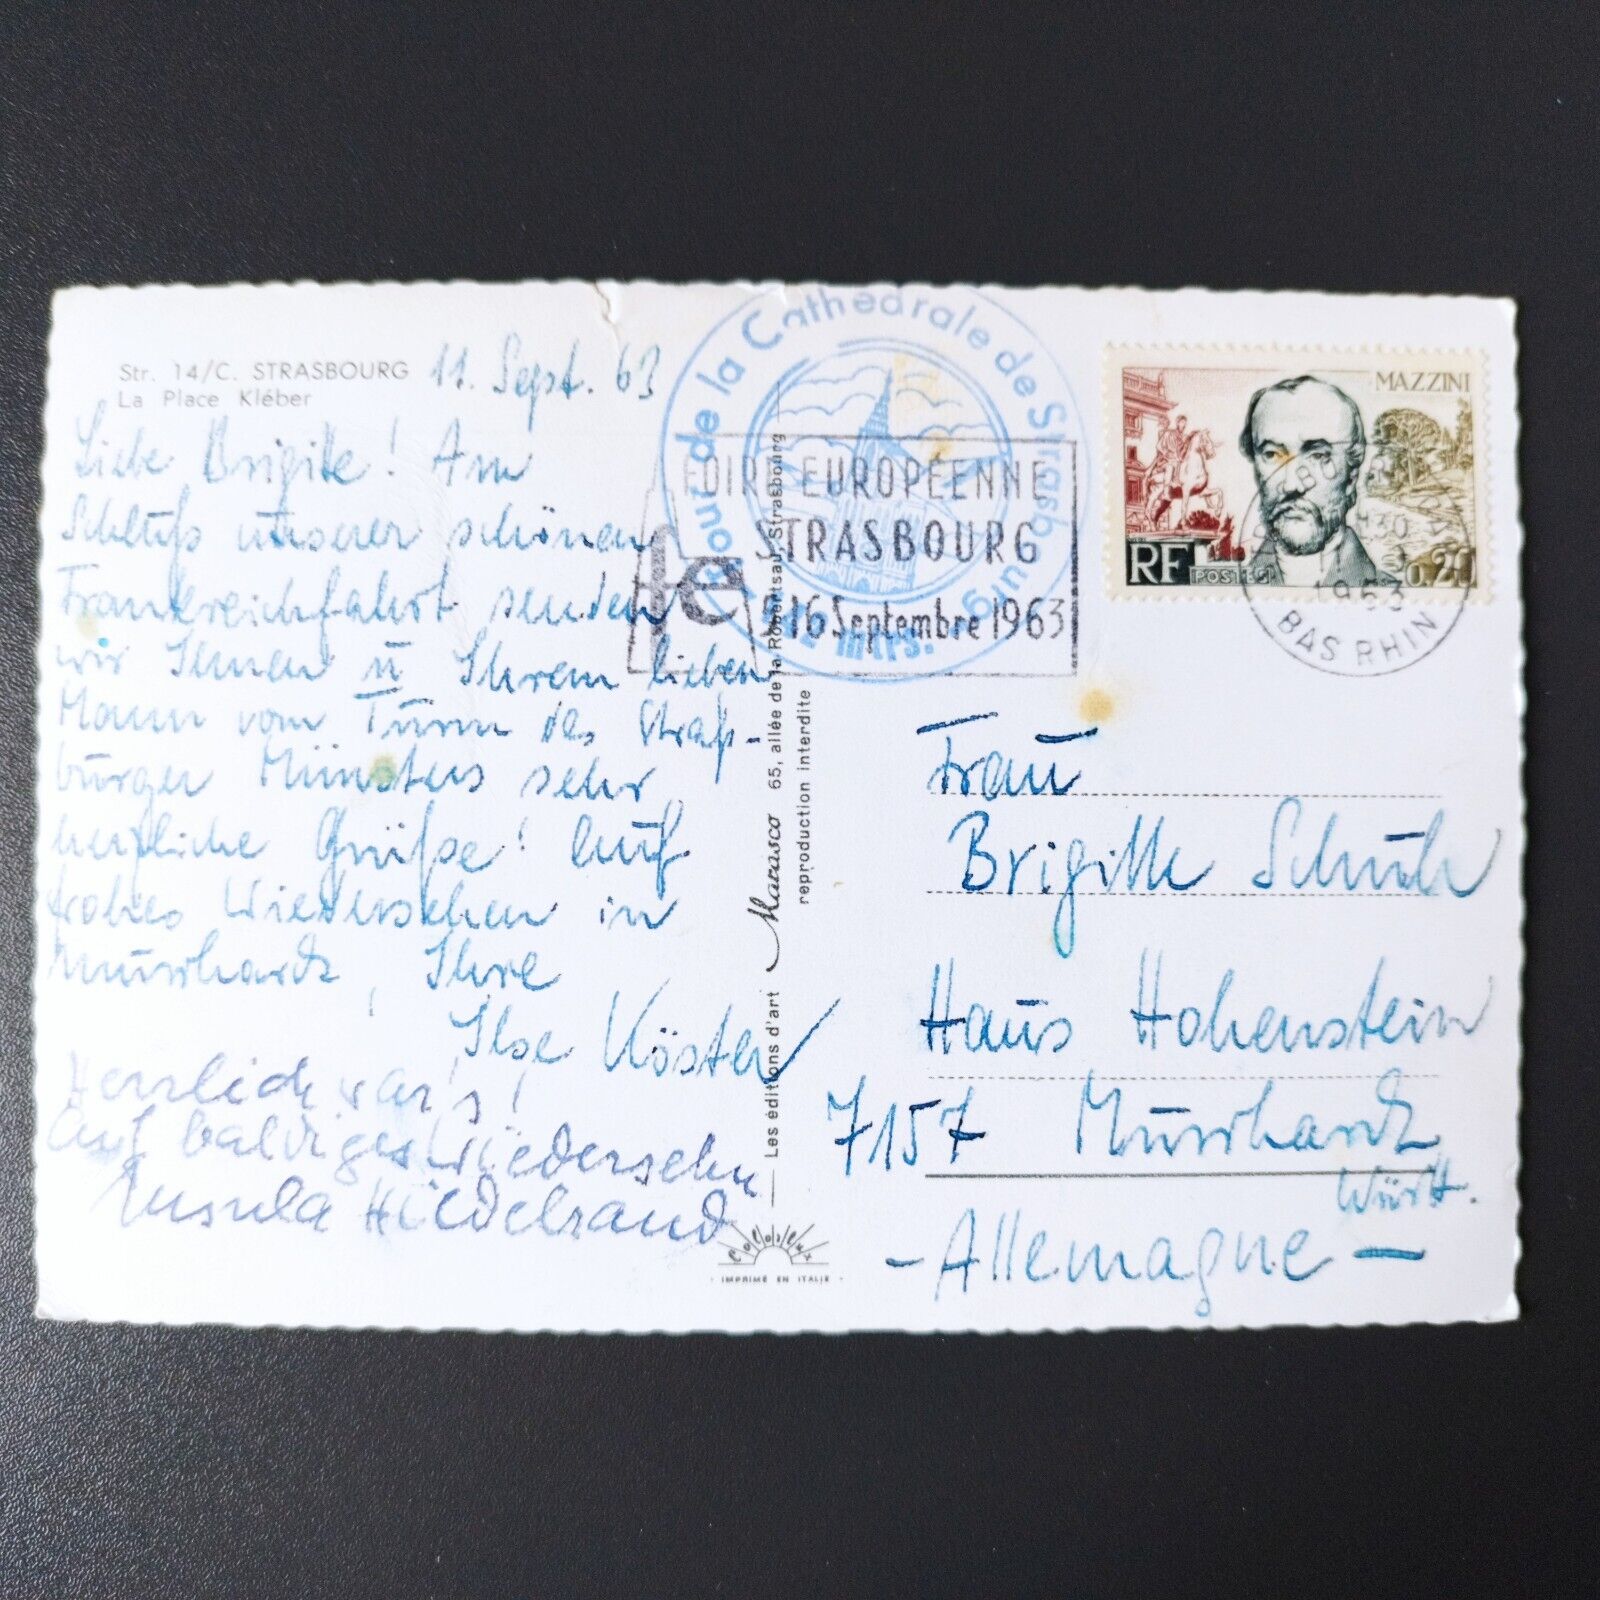 Str. 14/C. STRASBOURG
La Place Kléber
11. Sept. 63
Liebe Brigitte! Am
Schluß unserer schönen
Frankreichfahrt senden
wir Ihnen u Ihrem lieben
Mann vom Turm des Straß-
burger Münsters sehr
herzliche Grüße! Auf
frohes Wiedersehen in
Murrhardt, Ihre
Ilse Köster
Herrlich war's!
Auf baldiges Wiedersehn
Ursula Hildebrand
Les éditions d'art Marasco 65, allée de la Robertsau, Strasbourg
reproduction interdite
Colorlux
IMPRIMÉ EN ITALIE
de la Cathédrale de Strasbourg
142 mtrs.
FOIRE EUROPÉENNE
STRASBOURG
fe
16 Septembre 1963
MAZZINI
RF POSTES 0,20
1963
BAS RHIN
Frau
Brigitte Schuh
Haus Hohenstein
7157 Murrhardt
Württ.
- Allemagne -